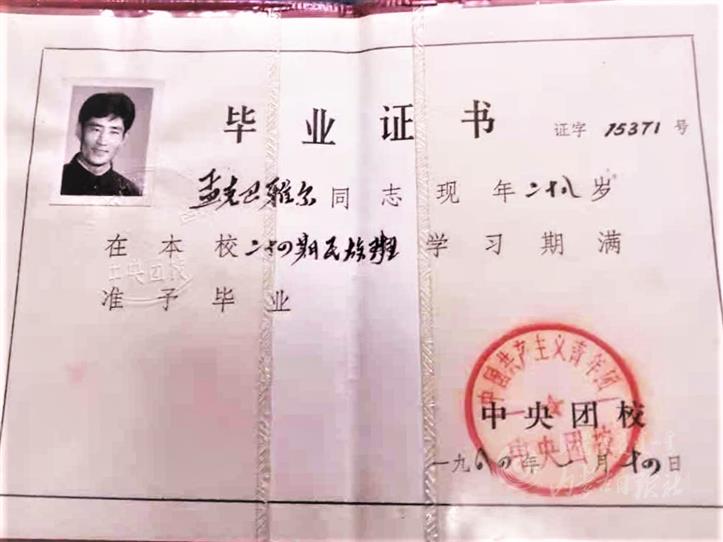 毕业证书
证字 15371 号
孟克巴雅尔同志现年二十八岁
在本校二十四期民族班学习期满
准予毕业
中国共产主义青年团
中央团校
中央团校
中央团校
一九八四年一月十四日
内蒙古日报社